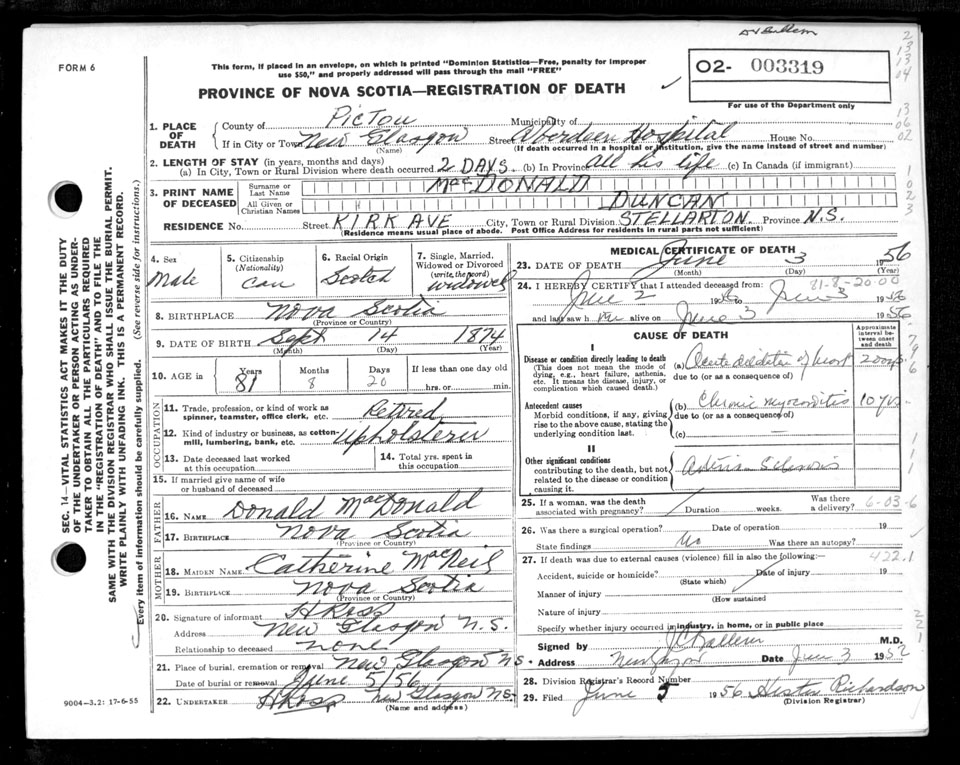 FORM 6
This form, if placed in an envelope, on which is printed "Dominion Statistics—Free, penalty for improper
use $50," and properly addressed will pass through the mail "FREE"
O2- 003319
For use of the Department only
PROVINCE OF NOVA SCOTIA—REGISTRATION OF DEATH
1. PLACE OF DEATH { County of Pictou Municipality of
If in City or Town New Glasgow (Name) Street Aberdeen Hospital House No.
(If death occurred in a hospital or institution, give the name instead of street and number)
2. LENGTH OF STAY (in years, months and days)
(a) In City, Town or Rural Division where death occurred 2 DAYS. (b) In Province all his life (c) In Canada (if immigrant)
3. PRINT NAME OF DECEASED { Surname or Last Name MacDONALD
All Given or Christian Names DUNCAN
RESIDENCE No. Street KIRK AVE City, Town or Rural Division STELLARTON. Province N.S.
(Residence means usual place of abode. Post Office Address for residents in rural parts not sufficient)
4. Sex Male
5. Citizenship (Nationality) Can
6. Racial Origin Scotch
7. Single, Married, Widowed or Divorced (write the word) widowed
8. BIRTHPLACE Nova Scotia
(Province or Country)
9. DATE OF BIRTH Sept 14 1874
(Month) (Day) (Year)
10. AGE in { Years 81 Months 8 Days 20 If less than one day old
hrs. or min.
OCCUPATION
11. Trade, profession, or kind of work as spinner, teamster, office clerk, etc. Retired
12. Kind of industry or business, as cotton-mill, lumbering, bank, etc. upholsterer
13. Date deceased last worked at this occupation
14. Total yrs. spent in this occupation
15. If married give name of wife or husband of deceased
FATHER
16. NAME Donald MacDonald
17. BIRTHPLACE Nova Scotia
(Province or Country)
MOTHER
18. MAIDEN NAME Catherine MacNeil
19. BIRTHPLACE Nova Scotia
(Province or Country)
20. Signature of informant H Ross
Address New Glasgow N.S.
Relationship to deceased none
21. Place of burial, cremation or removal New Glasgow N.S.
Date of burial or removal June 5/56
22. UNDERTAKER H Ross New Glasgow N.S.
(Name and address)
9004-3.2: 17-6-55
MEDICAL CERTIFICATE OF DEATH
23. DATE OF DEATH June 3 1956
(Month) (Day) (Year)
24. I HEREBY CERTIFY that I attended deceased from:
June 2 1956 June 3 1956
and last saw h alive on June 3 1956
CAUSE OF DEATH
Approximate interval between onset and death
I
Disease or condition directly leading to death
(This does not mean the mode of dying, e.g., heart failure, asthenia, etc. It means the disease, injury, or complication which caused death.)
(a) Acute dilitation of heart 2 days
due to (or as a consequence of)
Antecedent causes
Morbid conditions, if any, giving rise to the above cause, stating the underlying condition last.
(b) Chronic myocarditis 10 yrs.
due to (or as a consequence of)
(c)
II
Other significant conditions contributing to the death, but not related to the disease or condition causing it.
Arterio Sclerosis
25. If a woman, was the death associated with pregnancy? Duration weeks. Was there a delivery?
6-03-6
26. Was there a surgical operation? Date of operation 19
State findings No Was there an autopsy?
27. If death was due to external causes (violence) fill in also the following:—
422.1
Accident, suicide or homicide? Date of injury 19
(State which)
Manner of injury
(How sustained
Nature of injury
Specify whether injury occurred in industry, in home, or in public place
Signed by M.D.
Address New Glasgow Date June 3 1952
28. Division Registrar's Record Number
29. Filed June 5 1956 Hester Richardson
(Division Registrar)
SEC. 14—VITAL STATISTICS ACT MAKES IT THE DUTY
OF THE UNDERTAKER OR PERSON ACTING AS UNDER-
TAKER TO OBTAIN ALL THE PARTICULARS REQUIRED
IN THE "REGISTRATION OF DEATH" AND TO FILE THE
SAME WITH THE DIVISION REGISTRAR WHO SHALL ISSUE THE BURIAL PERMIT.
WRITE PLAINLY WITH UNFADING INK. THIS IS A PERMANENT RECORD.
Every item of information should be carefully supplied. (See reverse side for instructions.)